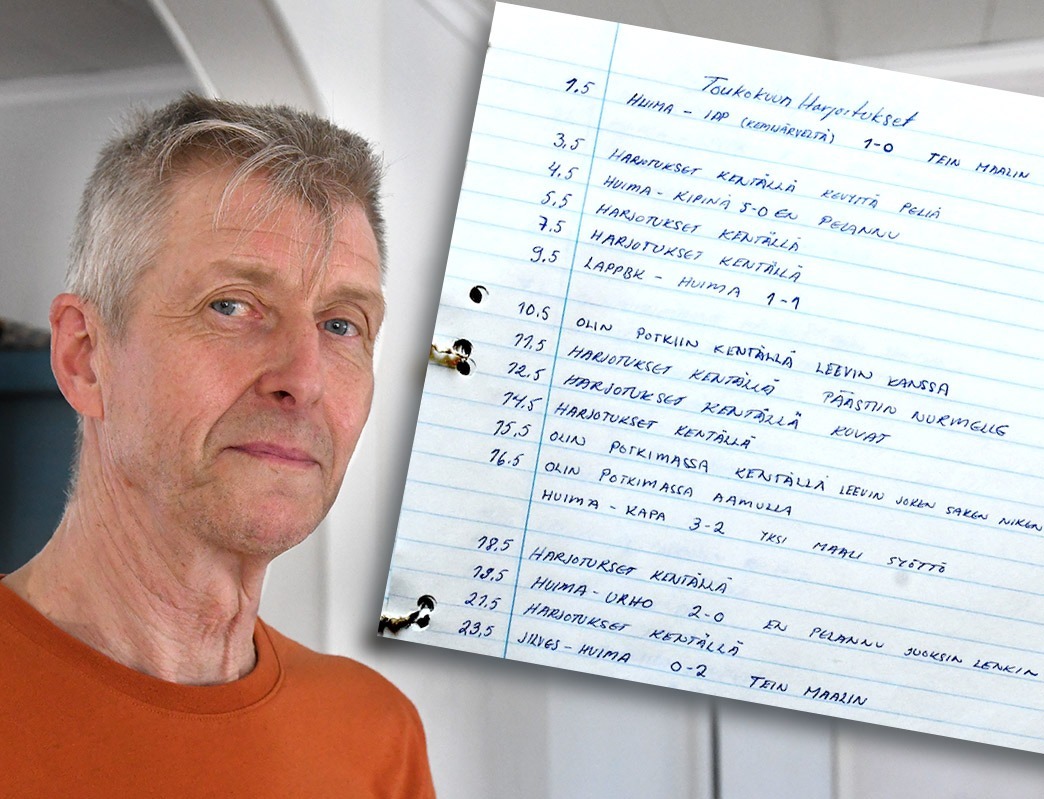 Toukokuun Harjoitukset
1.5 HUIMA - IAP (KEMIJÄRVELTÄ) 1-0 TEIN MAALIN
3.5 HARJOTUKSET KENTÄLLÄ KEVYTTÄ PELIÄ
4.5 HUIMA - KIPINÄ 5-0 EN PELANNU
5.5 HARJOTUKSET KENTÄLLÄ
7.5 HARJOTUKSET KENTÄLLÄ
9.5 LAPPBK - HUIMA 1-1
10.5 OLIN POTKIIN KENTÄLLÄ LEEVIN KANSSA
11.5 HARJOTUKSET KENTÄLLÄ PÄÄSTIIN NURMELLE
12.5 HARJOTUKSET KENTÄLLÄ KOVAT
14.5 HARJOTUKSET KENTÄLLÄ
15.5 OLIN POTKIMASSA KENTÄLLÄ LEEVIN JOKEN SAKEN NIKEN
16.5 OLIN POTKIMASSA AAMULLA
HUIMA - KAPA 3-2 YKSI MAALI SYÖTTÖ
18.5 HARJOTUKSET KENTÄLLÄ
19.5 HUIMA - URHO 2-0 EN PELANNU JUOKSIN LENKIN
21.5 HARJOTUKSET KENTÄLLÄ
23.5 JILVES - HUIMA 0-2 TEIN MAALIN